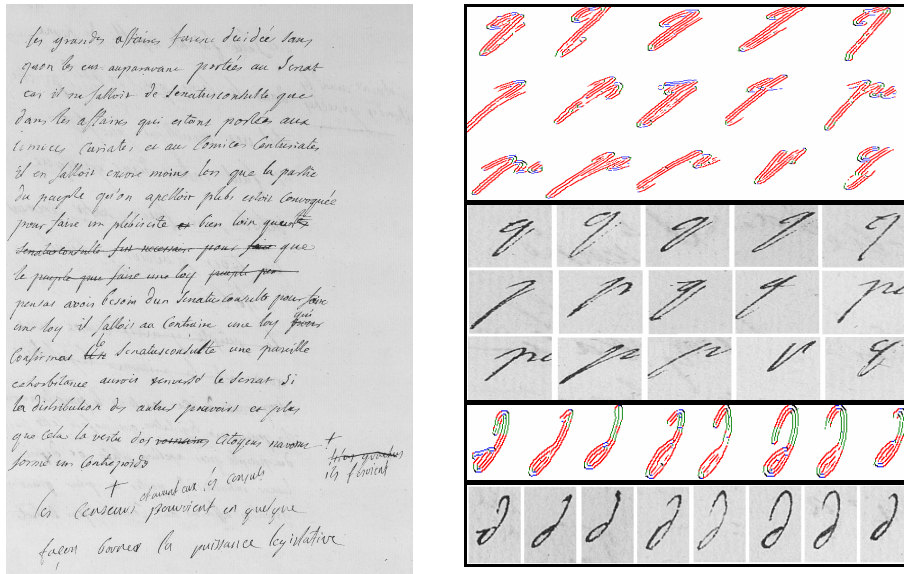 les grandes affaires furent décidées sans
quon les eut auparavant portées au Senat
car il ne falloit de Senatusconsulte que
dans les affaires qui etoint portées aux
comices Curiates et aux Comices Centuriates
il en falloit encore moins lors que la partie
du peuple qu'on apelloit plebs estoit convoquée
pour faire un plebiscite bien loin que
Senatusconsulte fut necessaire pour que
le peuple faire une loy
pensat avoir besoin dun Senatusconsulte pour faire
une loy il falloit au Contraire une loy qui
Confirmat Senatusconsulte une pareille
exhorbitance auroit renversé le Senat si
la distribution des autres pouvoirs et plus
que cela la vertu des Citoyens navoint +
formé un Contrepoids
ils etoient
+ et consuls
les Censeurs pouvoient en quelque
façon borner la puissance legislative
q q q q q
p p q q pe
pe p p p q
d d d d d d d d